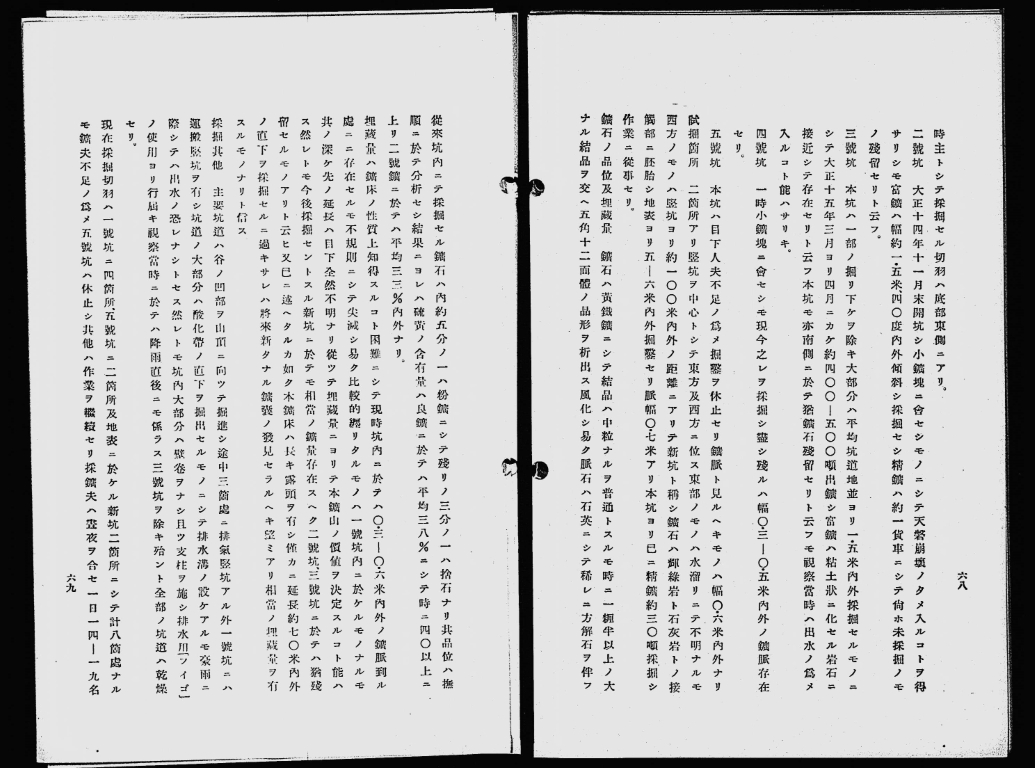 時主トシテ採掘セル切羽ハ底部東側ニアリ。
二號坑　大正十四年十一月末開坑シ小鑛塊ニ會セシモノニシテ天磐崩壞ノタメ入ルコトヲ得
サリシモ富鑛ハ幅約一・五米四〇度內外傾斜シ採掘セシ精鑛ハ約一貨車ニシテ尙ホ未採掘ノモ
ノ殘留セリト云フ。
三號坑　本坑ハ一部ノ掘リ下ケヲ除キ大部分ハ平均坑道地並ヨリ一・五米內外採掘セルモノニ
シテ大正十五年三月ヨリ四月ニカケ約四〇〇—五〇〇噸出鑛シ富鑛ハ粘土狀ニ化セル岩石ニ
接近シテ存在セリト云フ本坑モ亦南側ニ於テ猶鑛石殘留セリト云フモ視察當時ハ出水ノ爲メ
入ルコト能ハサリキ。
四號坑　一時小鑛塊ニ會セシモ現今之レヲ採掘シ盡シ殘ルハ幅〇・三—〇・五米內外ノ鑛脈存在
セリ。
五號坑　本坑ハ目下人夫不足ノ爲メ掘鑿ヲ休止セリ鑛脈ト見ルヘキモノハ幅〇・六米內外ナリ
試掘箇所　二箇所アリ竪坑ヲ中心トシテ東方及西方ニ位ス東部ノモノハ水溜リニテ不明ナルモ
西方ノモノハ竪坑ヨリ約一〇〇米內外ノ距離ニアリテ新坑ト稱シ鑛石ハ輝綠岩ト石灰岩トノ接
觸部ニ胚胎シ地表ヨリ五—六米內外掘鑿セリ脈幅〇・七米アリ本坑ヨリ已ニ精鑛約三〇噸採掘シ
作業ニ從事セリ。
鑛石ノ品位及埋藏量　鑛石ハ黃鐵鑛ニシテ結晶ハ中粒ナルヲ普通トスルモ時ニ一糎半以上ノ大
ナル結晶ヲ交ヘ五角十二面體ノ晶形ヲ析出ス風化シ易ク脈石ハ石英ニシテ稀レニ方解石ヲ伴フ
六八
從來坑內ニテ採掘セル鑛石ハ內約五分ノ一ハ粉鑛ニシテ殘リノ三分ノ一ハ捨石ナリ其品位ハ撫
順ニ於テ分析セシ結果ニヨレハ硫黃ノ含有量ハ良鑛ニ於テハ平均三八％ニシテ時ニ四〇以上ニ
上リ二號鑛ニ於テハ平均三三％內外ナリ。
埋藏量ハ鑛床ノ性質上知得スルコト困難ニシテ現時坑內ニ於テハ〇・三—〇・六米內外ノ鑛脈到ル
處ニ存在セルモ不規則ニシテ尖滅シ易ク比較的纒リタルモノハ一號坑內ニ於ケルモノナルモ
其ノ深ケ先ノ延長ハ目下全然不明ナリ從ツテ埋藏量ニヨリテ本鑛山ノ價値ヲ決定スルコト能ハ
ス然レトモ今後採掘セントスル新坑ニ於テモ相當ノ鑛量存在スヘク二號坑、三號坑ニ於テハ猶殘
留セルモノアリト云ヒ又已ニ述ヘタルカ如ク本鑛床ハ長キ露頭ヲ有シ僅カニ延長約七〇米內外
ノ直下ヲ採掘セルニ過キサレハ將來新タナル鑛囊ノ發見セラルヘキ望ミアリ相當ノ埋藏量ヲ有
スルモノナリト信ス
採掘其他　主要坑道ハ谷ノ凹部ヲ山頂ニ向ツテ掘進シ途中三箇處ニ排氣竪坑アル外一號坑ニハ
運搬竪坑ヲ有シ坑道ノ大部分ハ酸化帶ノ直下ヲ掘出セルモノニシテ排水溝ノ設ケアルモ豪雨ニ
際シテハ出水ノ恐レナシトセス然レトモ坑內大部分ハ壁卷ヲナシ且ツ支柱ヲ施シ排水用「フイゴ」
ノ使用ヨリ行屆キ視察當時ニ於テハ降雨直後ニモ係ラス三號坑ヲ除キ殆ント全部ノ坑道ハ乾燥
セリ。
現在採掘切羽ハ一號坑ニ四箇所、五號坑ニ二箇所及地表ニ於ケル新坑二箇所ニシテ計八箇處ナル
モ鑛夫不足ノ爲メ五號坑ハ休止シ其他ハ作業ヲ繼續セリ採鑛夫ハ晝夜ヲ合セ一日一四—一九名
六九